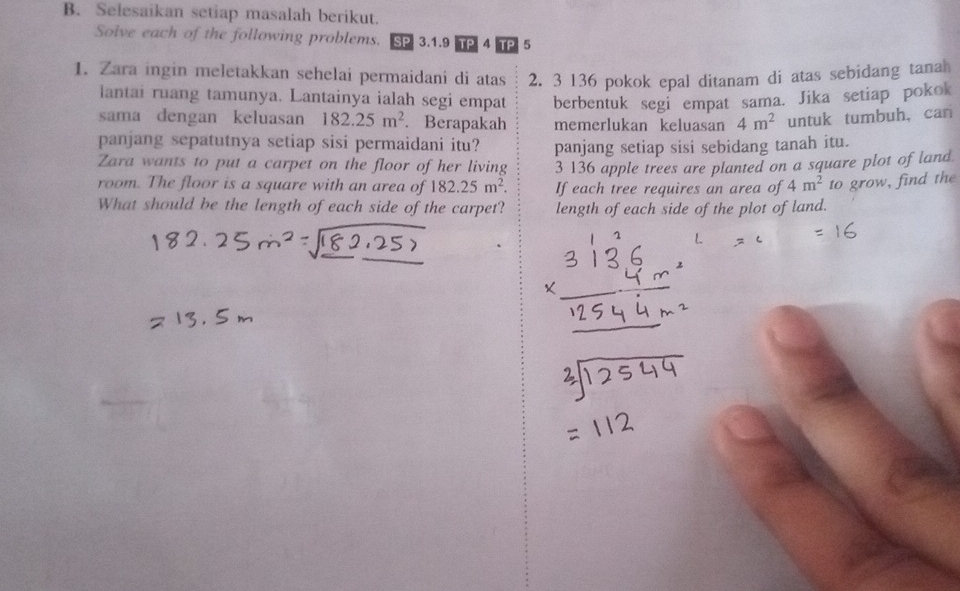 B. Selesaikan setiap masalah berikut.
Solve each of the following problems. SP 3.1.9 TP 4 TP 5
1. Zara ingin meletakkan sehelai permaidani di atas
lantai ruang tamunya. Lantainya ialah segi empat
sama dengan keluasan 182.25 m². Berapakah
panjang sepatutnya setiap sisi permaidani itu?
Zara wants to put a carpet on the floor of her living
room. The floor is a square with an area of 182.25 m².
What should be the length of each side of the carpet?
182.25 m² = √182.25
= 13.5 m
2. 3 136 pokok epal ditanam di atas sebidang tanah
berbentuk segi empat sama. Jika setiap pokok
memerlukan keluasan 4 m² untuk tumbuh, cari
panjang setiap sisi sebidang tanah itu.
3 136 apple trees are planted on a square plot of land.
If each tree requires an area of 4 m² to grow, find the
length of each side of the plot of land.
= 16
1 2
3136
× 4 m²
12544 m²
2√12544
= 112